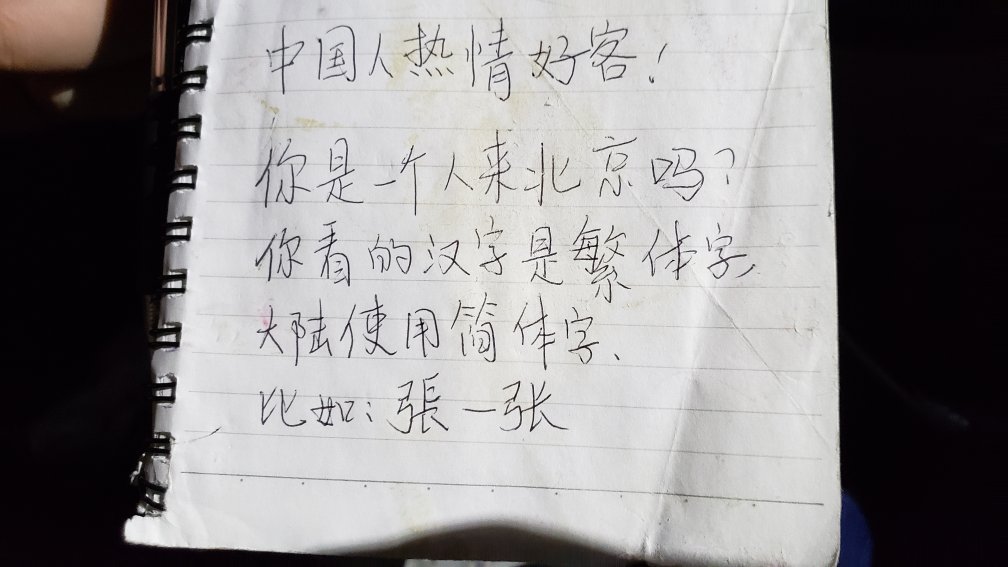 中国人热情好客!
你是一个人来北京吗?
你看的汉字是繁体字、
大陆使用简体字、
比如:張一张